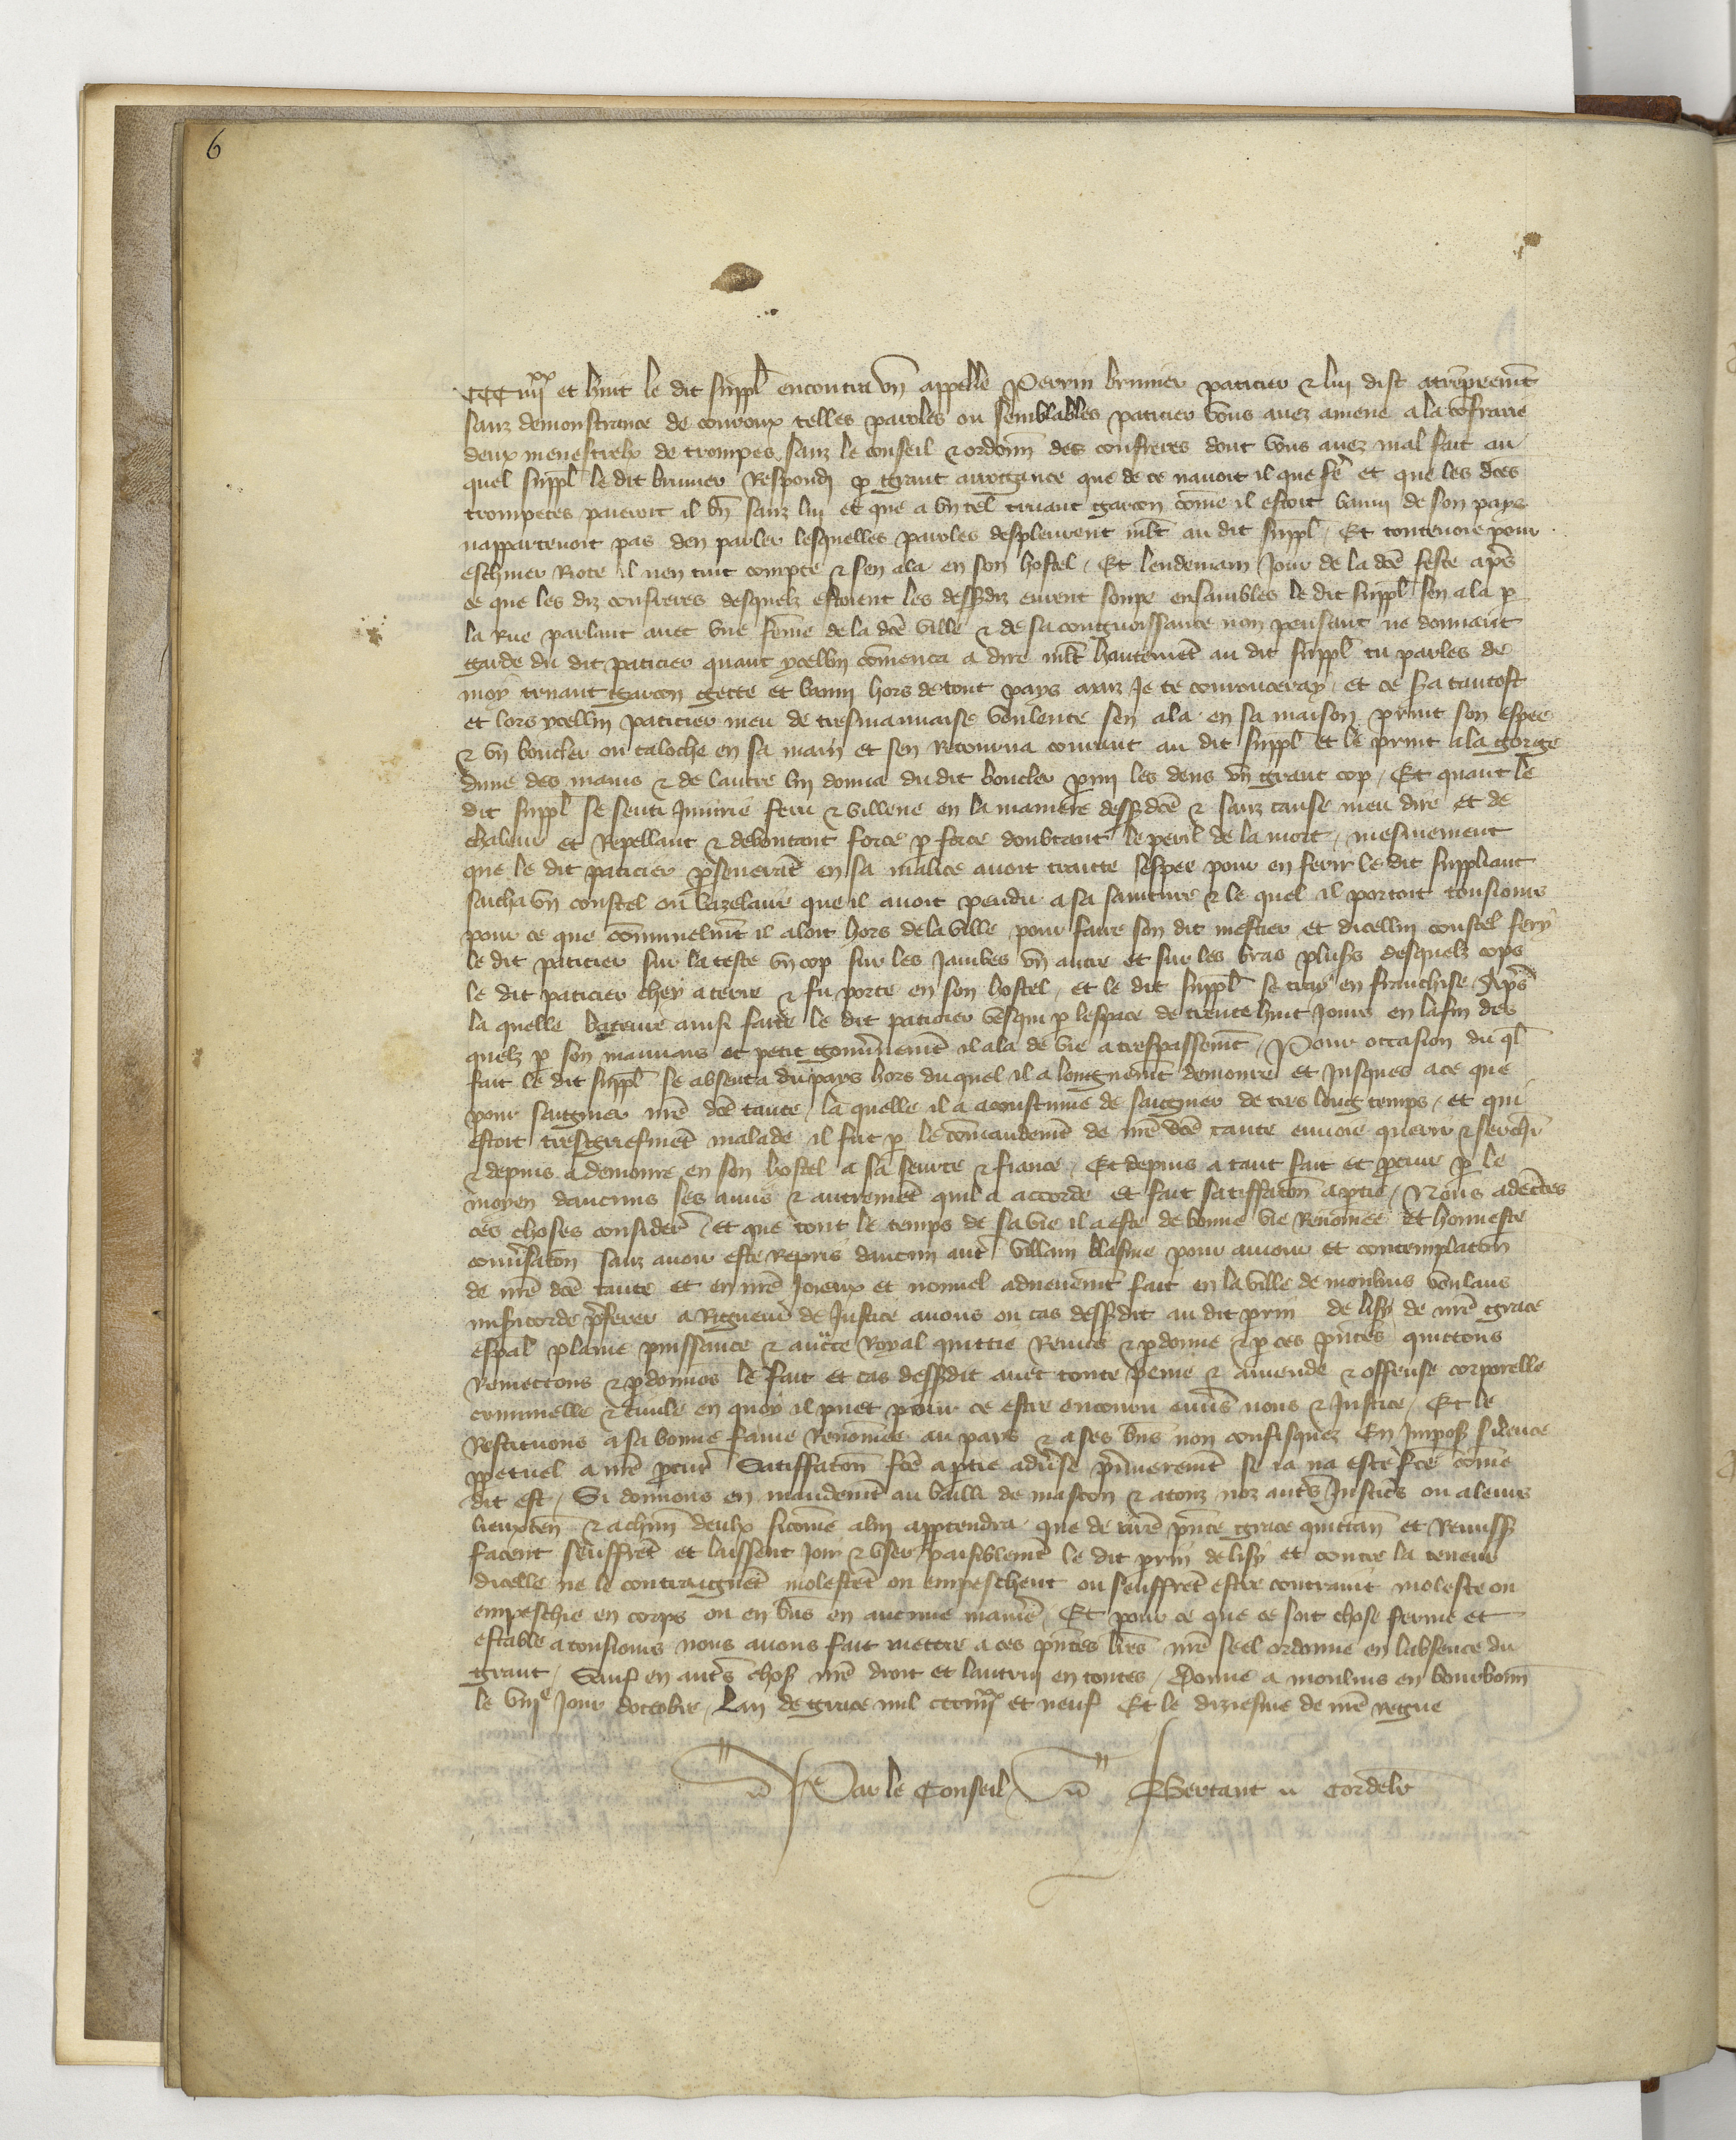 6
CCC iiii xx et huit le dit suppl encontra vn appelle Perrin brunier paticier & lui dist atrempremt
sanz demonstrance de couroux telles paroles ou semblables paticier vous auez amene a la cofrarie
deux menestrelx de trompes sanz le conseil & ordonn des confreres dont vous auez mal fait au
quel suppl le dit brunier Respondi p grant arrogance que de ce nauoit il que fe et que les dces
trompetes paieroit il bn sanz lui et que a vn tel truant garcon come il estoit banni de son pays
nappartenoit pas den parler lesquelles paroles despleurent mlt au dit suppl / Et toutevoie pour
eschiuer Riote il nen tint compte & sen ala en son hostel / Et lendemain Jour de la dce feste aps
ce que les diz confreres desquelz estoient les dessdiz eurent soupe ensambles le dit suppl sen ala p
la Rue parlant auec vne feme de la dce ville & de sa congnoissance non pensant ne donnant
garde du dit paticier quant ycellui comenca a dire mlt hautemet au dit suppl tu parles de
moy truant garcon gette et banni hors de tout pays mais Je te courrouceray / et ce sra tantost
et lors ycellui paticier meu de tresmauuaise voulente sen ala en sa maison print son espee
& vn boucler ou taloche en sa main et sen Retourna courant au dit suppl et le print a la gorge
dune des mains & de lautre lui donna du dit boucler pmi les dens vn grant cop / Et quant le
dit suppl se senti Jniurie feru & villene en la maniere dessdce & sanz cause meu dire et de
chaleur et Repellant & deboutant force p force doubtant le peril de la mort / mesmement
que le dit paticier pseuerat en sa malice auoit traicte lespee pour en ferir le dit suppliant
sacha vn coustel ou bazelaire que il auoit pendu a sa sainture & le quel il portoit tousiours
pour ce que communelmt il aloit hors de la ville pour faire son dit mestier et dicellui coustel fery
le dit paticier sur la teste vn cop sur les Jambes vn autre et sur les bras plusrs desquelz cops
le dit paticier chey a terre & fu porte en son hostel / et le dit suppl se tray en franchise Aps
la quelle bateure ainsi faicte le dit paticier vesqui p lespace de trente huit Jours en lafin des
quelz p son mauuais et petit gouunemt il ala de vie a trespassemt / Pour occasion du ql
fait le dit suppl se absenta du pays hors du quel il a longuemt demoure et Jusques a ce que
pour saigner nre dce tante / la quelle il a acoustume de saigner de tres long temps / et qui
estoit tresgriefmet malade il fut p le comandemt de nre dce tante enuoie querir & serchr
& depuis a demoure en son hostel a sa seurte & fiance / Et depuis a tant fait et pcure p le
moyen daucuns ses amis & autremet quil a accorde et fait satiffaton a ptie / Nous adectes
ces choses consider / et que tout le temps de sa vie il a este de bonne vie Renomee et honneste
conusaton sanz auoir este Repris daucun aut villain blasme pour amour et contemplaton
de nre dce tante et en nre Joieux et nouuel aduenemt fait en la ville de moulins voulans
misicorde pferer a Rigueur de Justice auons ou cas dessdit au dit prin de lisy de nre grace
espal plaine puissance & aucte Royal quittie Remis & pdonne & p ces pntes quittons
Remettons & pdonnos le fait et cas dessdit auec toute peine & amende & offense corporelle
criminelle & ciuile en quoy il puet pour ce estre encouru enus nous & Justice / Et le
Restituons a sa bonne fame Renomee au pays & a ses bns non confisquez En Impos silence
ppetuel a nre pcur Satiffaton fce a ptie aduse pmieremt se ia na este fce come
dit est / Si donnons en mandemt au bailli de mascon & atouz noz auts Justics ou aleurs
lieuxten & achun deulx sicome alui apptendra que de nre pnte grace quictan et Remiss
facent seuffret et laissent Joir & vser paisiblemt le dit prin de lisy et contre la teneur
dicelle ne le contraignet molestet ou empeschent ou seuffret estre contraint moleste ou
empeschie en corps ou en bns en aucune manie / Et pour ce que ce soit chose ferme et
estable a tousiours nous auons fait mettre a ces pntes lres nre seel ordonne en labsence du
grant / Sauf en auts chos nre droit et lautrui en toutes / Donne a moulins en bourbonn
le viiie Jour doctobre / Lan de grace mil ccciiiixx et neuf Et le diziesme de nre regne
Par le Conseil Gertant Cordelr